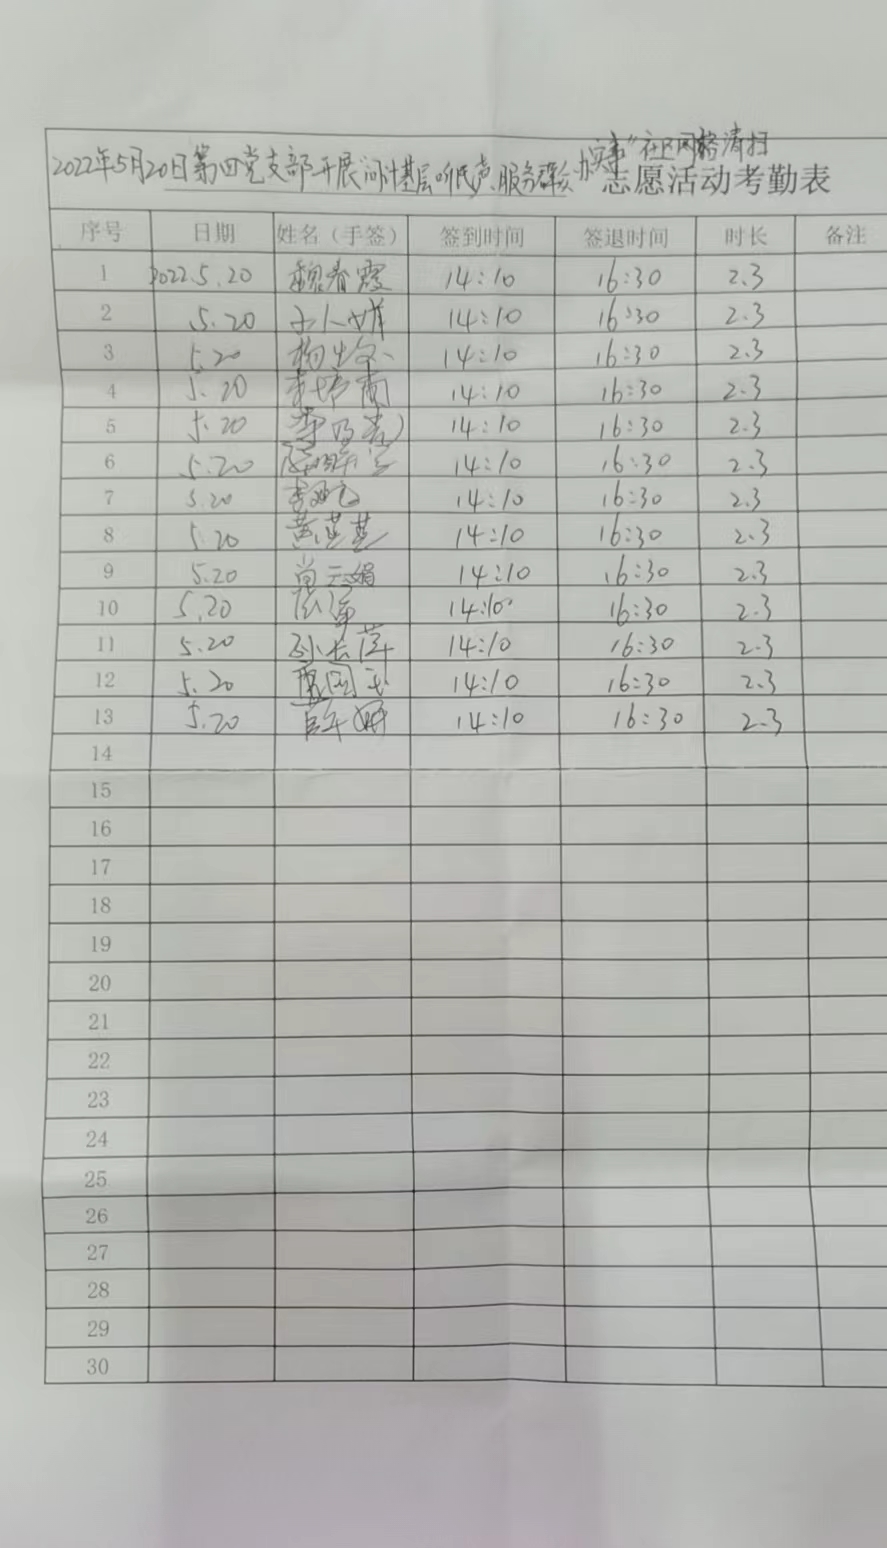 2022年5月20日第四党支部开展问计基层听民声服务群众办实事"社区网格清扫
志愿活动考勤表
序号 日期 姓名（手签） 签到时间 签退时间 时长 备注
1 2022.5.20 魏春霞 14:10 16:30 2.3
2 5.20 14:10 16:30 2.3
3 5.20 14:10 16:30 2.3
4 5.20 14:10 16:30 2.3
5 5.20 14:10 16:30 2.3
6 5.20 14:10 16:30 2.3
7 5.20 14:10 16:30 2.3
8 5.20 14:10 16:30 2.3
9 5.20 单云娟 14:10 16:30 2.3
10 5.20 14:10 16:30 2.3
11 5.20 孙长萍 14:10 16:30 2.3
12 5.20 14:10 16:30 2.3
13 5.20 14:10 16:30 2.3
14
15
16
17
18
19
20
21
22
23
24
25
26
27
28
29
30